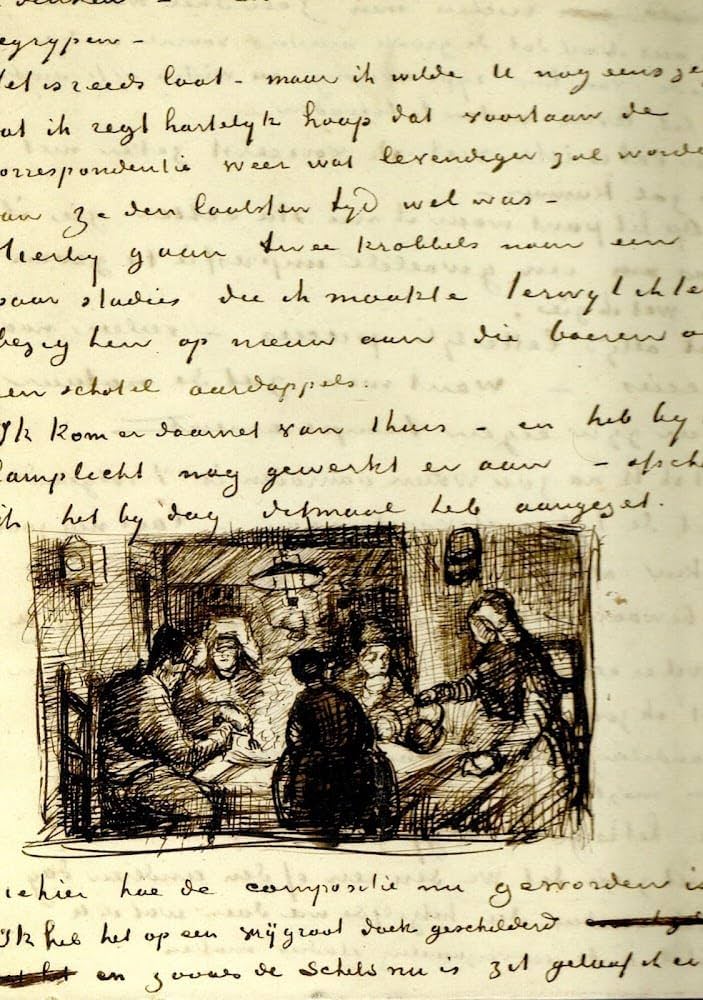 egrypen -
Het is reeds laat - maar ik wilde U nog eens ze
at ik regt hartelyk hoop dat voortaan de
orrespondentie weer wat levendiger zal worde
an ze den laatsten tyd wel was -
Hierby gaan twee krabbels naar een
paar studies die ik maakte terwyl ik te
bezig ben op nieuw aan die boeren o
en schotel aardappels.
Ik kom er daarnet van thuis - en heb by
lamplicht nog gewerkt er aan - ofsch
ik het by dag ditmaal heb aangezet.
iehier hoe de compositie nu geworden is
Ik heb het op een vry groot doek geschilderd
en zooals de schets nu is zit geloof ik er